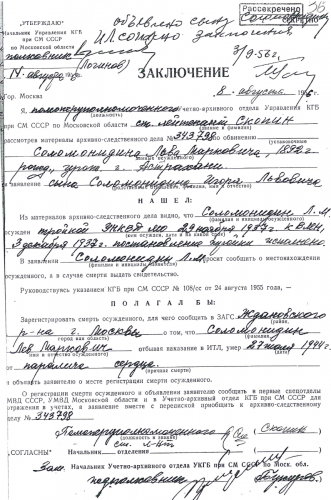 Рассекречено
„УТВЕРЖДАЮ"
объявлено сыну Соломонидину
Начальник Управления КГБ
при СМ СССР
по Московской области
полковник
(Логинов)
3/9-56 г.
14 августа
ЗАКЛЮЧЕНИЕ
Гор. Москва
8 августа
Я, помоперуполномоченного Учетно-архивного отдела Управления КГБ
(должность)
при СМ СССР по Московской области ст. лейтенант Скокин
(звание и фамилия)
рассмотрев материалы архивно-следственного дела № 343798 по обвинению
Соломонидина Льва Марковича, 1892
рожд, урож. г. Астрахани
и заявление сына Соломонидина Игоря Львовича
НАШЕЛ:
Из материалов архивно-следственного дела видно, что Соломонидин Л.М.
осужден тройкой УНКВД МО 29 ноября 1937 г. к ВМН,
3 декабря 1937 г. постановление тройки исполнено.
В заявлении Соломонидин просит сообщить о местонахождении
осужденного, а в случае смерти выдать свидетельство.
Руководствуясь указанием КГБ при СМ СССР № 108/сс от 24 августа 1955 года, —
ПОЛАГАЛ БЫ:
Зарегистрировать смерть осужденного, для чего сообщить в ЗАГС Ждановского
р-на г. Москвы о том, что Соломонидин
Лев Маркович отбывая наказание в ИТЛ, умер 27 июля 1944 г.
от паралича сердца.
(причина смерти)
и объявить заявителю о месте регистрации смерти осужденного.
О регистрации смерти осужденного и объявлении заявителю сообщить в первые спецотделы
МВД СССР, УМВД Московской области и в Учетно-архивный отдел КГБ при СМ СССР для
отражения в учетах, а заявление вместе с перепиской приобщить к архивно-следственному
делу № 343798
Помоперуполномоченного
Скокин
(должность и звание)
„СОГЛАСНЫ" Начальник отделения
Зам. Начальник Учетно-архивного отдела УКГБ при СМ СССР по Моск. обл.
подполковник